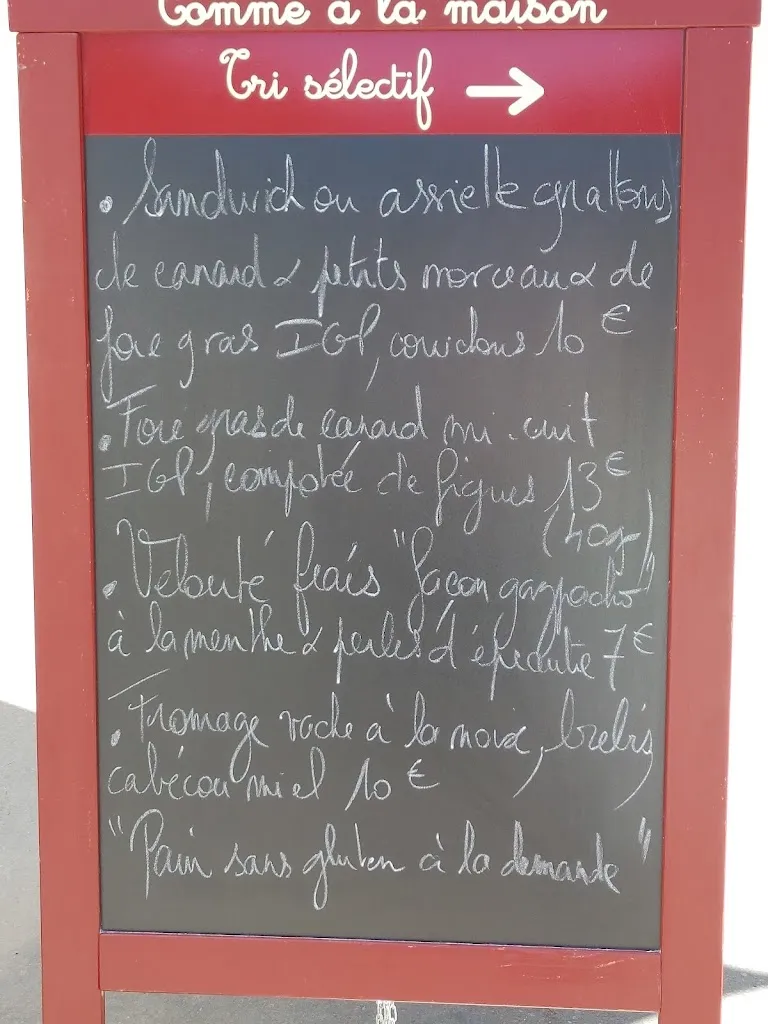 Comme à la maison
Tri sélectif →
• Sandwich ou assiette grattons
de canard & petits morceaux de
foie gras IGP, cornichons 10 €
• Foie gras de canard mi-cuit
IGP, compotée de figues 13 €
(40g)
• Velouté frais "façon gazpacho"
à la menthe & perles d'épeautre 7 €
• Fromage vache à la noix, brebis,
cabécou miel 10 €
"Pain sans gluten à la demande"